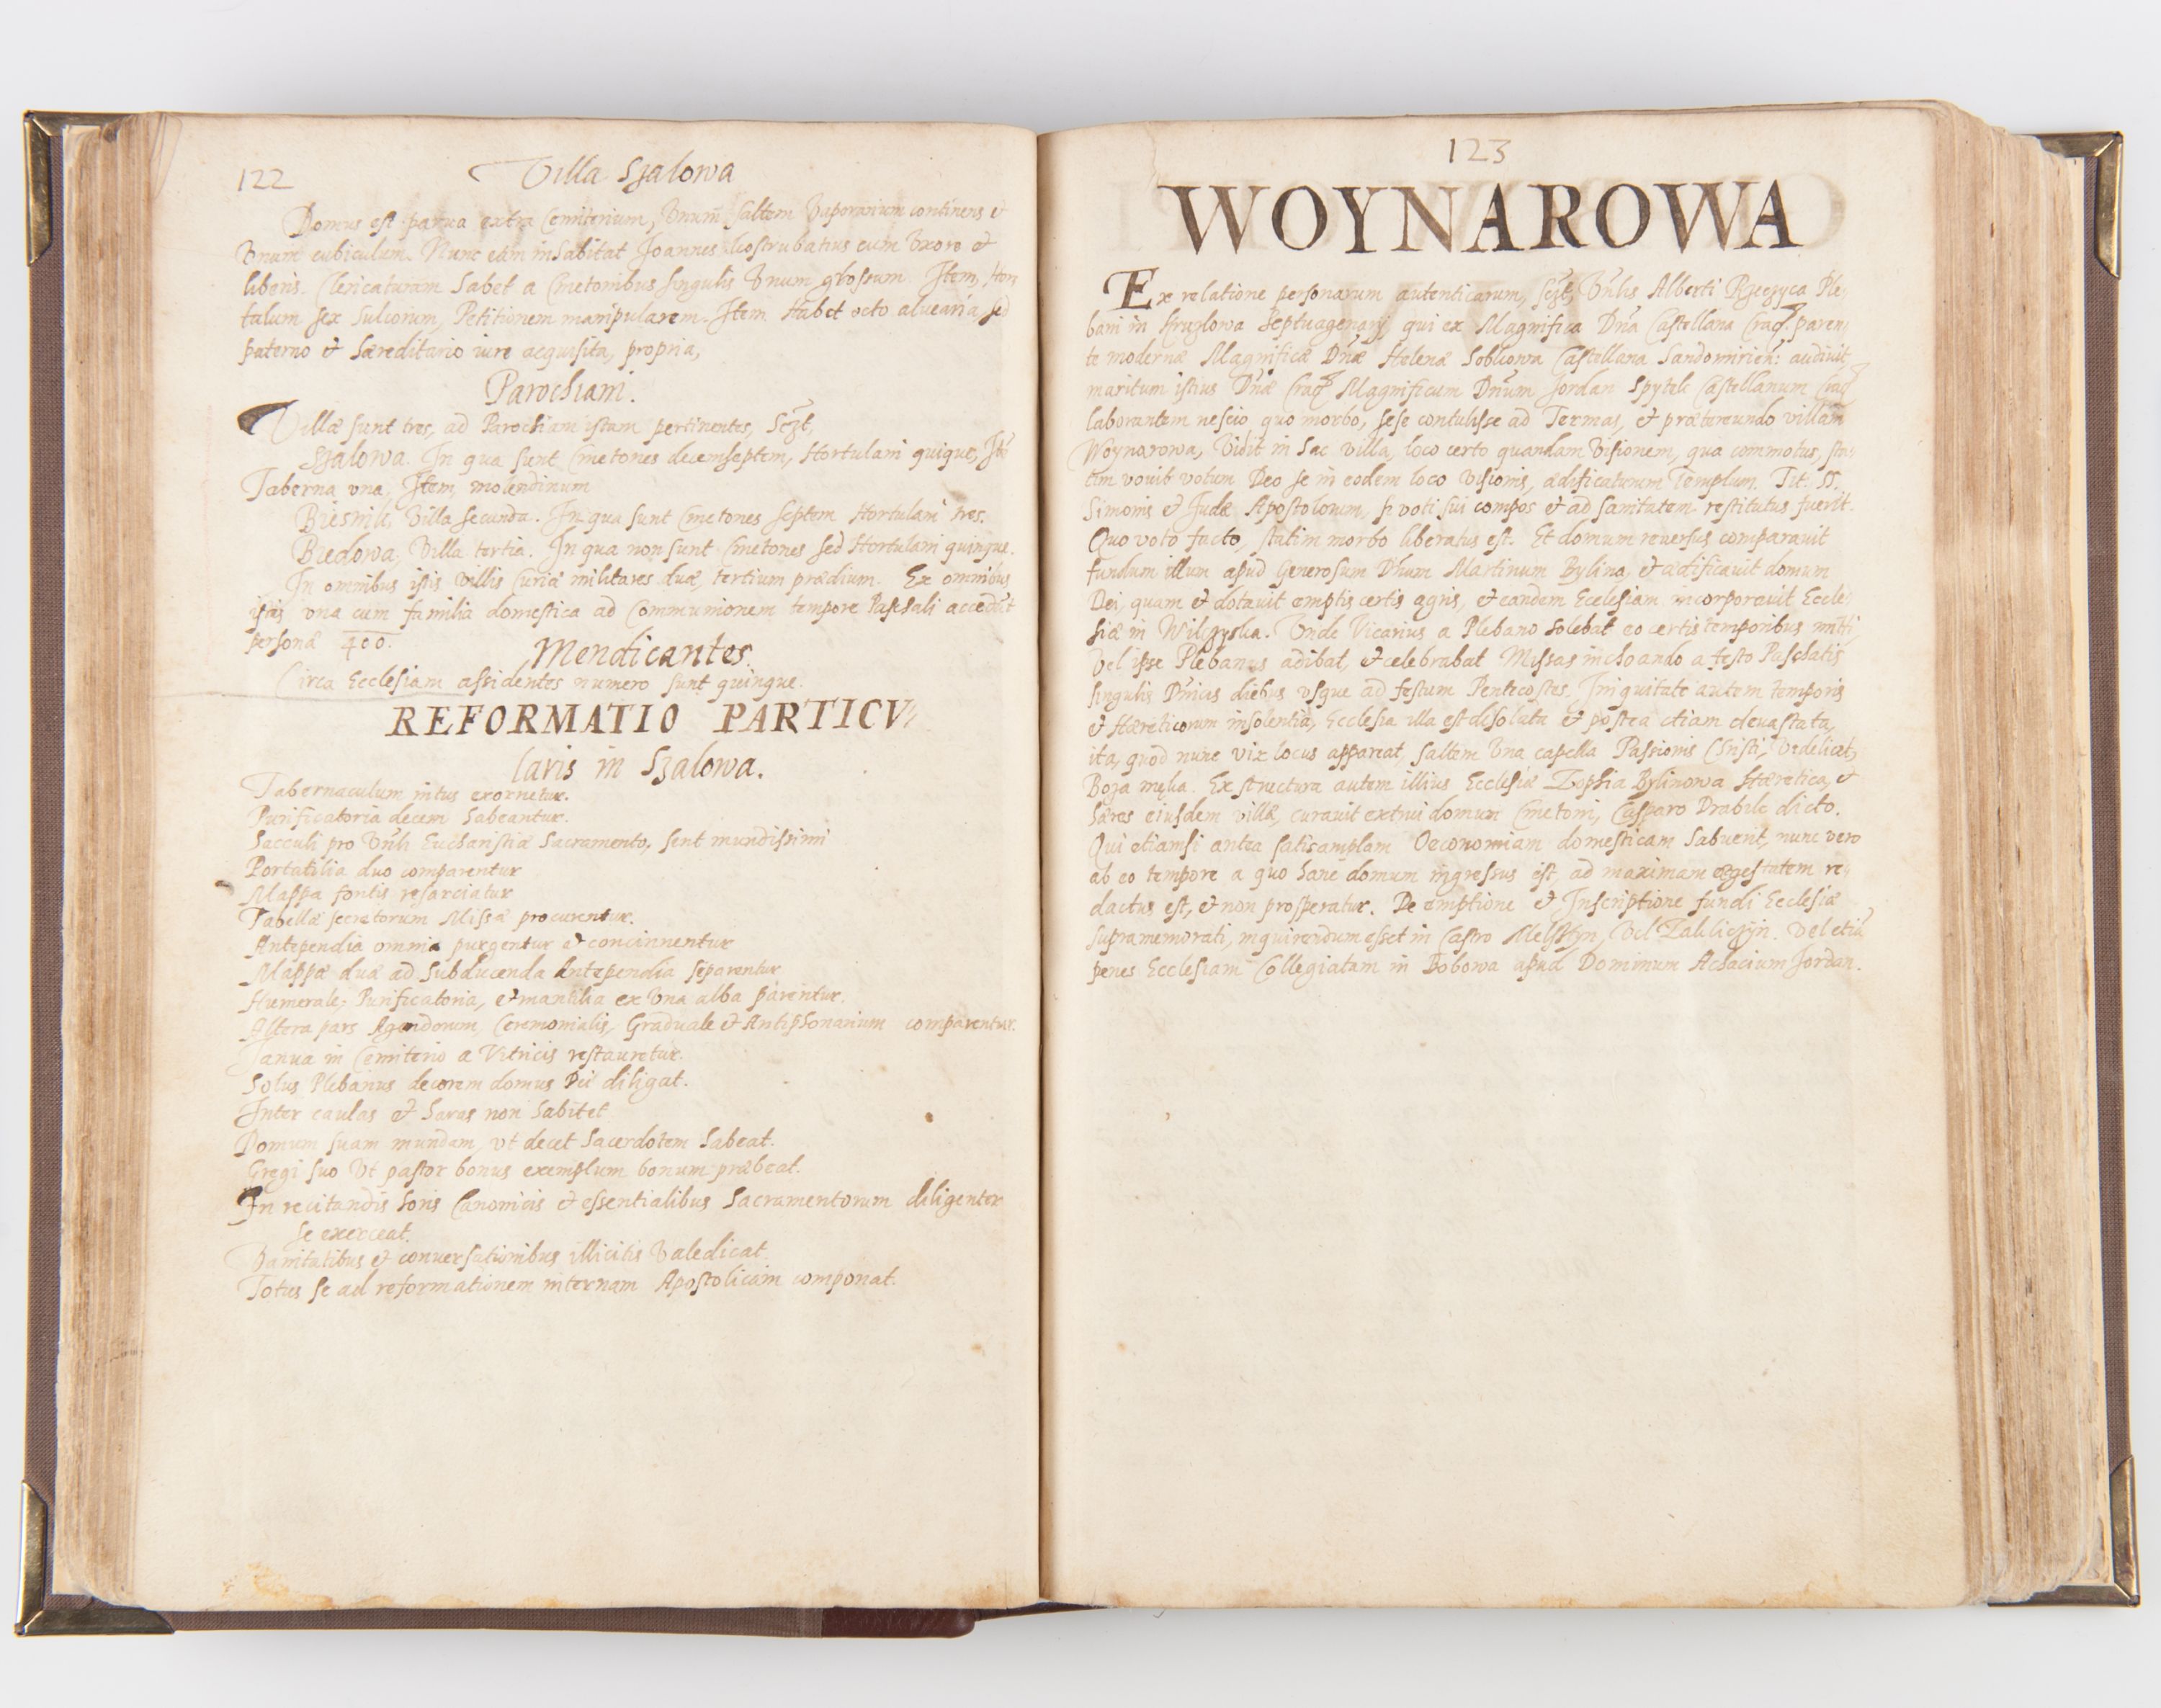 122
Villa Szalowa
Domus est parua extra Cemiterium, Vnum saltem Vaporarium continens et
Vnum cubiculum. Nunc eam inhabitat Joannes Kostrubatius cum Vxore et
liberis. Clericaturam habet a Cmetonibus singulis Vnum grossum. Item, Hor
tulum sex sulcorum, Petitionem manipularem. Item Habet octo aluearia, sed
paterno et haereditario iure acquisita, propria,
Parochiani.
Villæ sunt tres, ad Parochiam istam pertinentes, Sczt,
Szalowa. In qua sunt Cmetones decemseptem, Hortulani quique, Itē
Taberna vna, Item, molendinum
Biesnik, Villa secunda. In qua sunt Cmetones septem Hortulani tres.
Biedowa, Villa tertia. In qua non sunt Cmetones sed Hortulani quinque.
In omnibus istis villis Curiæ militares duæ, tertium prædium. Ex omnibus
istis vna cum familia domestica ad Communionem tempore Paschali accedūt
personæ 400.
Mendicantes.
Circa Ecclesiam assidentes numero sunt quinque.
REFORMATIO PARTICV,,
laris in Szalowa.
Tabernaculum intus exornetur.
Purificatoria decem habeantur.
Sacculi pro Vnli Eucharistiæ Sacramento, sint mundissimi
Portatilia duo comparentur
Mappa fontis resarciatur
Tabellæ secretorum Missæ procurentur.
Antependia omnia purgentur et concinnentur
Mappæ duæ ad subducenda Antependia separentur
Humerale, Purificatoria, et mantilia ex Vna alba parentur.
Altera pars Agendorum Ceremonialis, Graduale et Antiphonarium comparentur.
Janua in Cemiterio a Vitricis restauretur.
Solus Plebanus decorem domus Dei diligat.
Inter caulas et haras non habitet
Domum suam mundam, vt decet Sacerdotem habeat.
Gregi suo Vt pastor bonus exemplum bonum præbeat.
In recitandis horis Canonicis et essentialibus Sacramentorum diligenter
se exerceat.
Vanitatibus et conuersationibus illicitis Valedicat.
Totus se ad reformationem internam Apostolicam componat.
123
WOYNAROWA
Ex relatione personarum autenticarum, sczt, Vnlis Alberti Rzeczyca Ple,
bani in Kruzlowa Septuagenarij, qui ex Magnifica Dña Castellana Crac. paren,
te modernæ Magnificæ Dñæ Helenæ Sobkowa Castellana Sandomirien: audiuit
maritum istius Dñæ Crac. Magnificum Dñum Jordan Spytek Castellanum Crac.
laborantem nescio quo morbo, sese contulisse ad Termas, et prætereundo villam
Woynarowa, Vidit in hac villa, loco certo quandam Visionem, qua commotus, sta,
tim vouit votum Deo se in eodem loco Visionis, ædificaturum Templum. Tit. SS.
Simonis et Judæ Apostolorum, si voti sui compos et ad sanitatem restitutus fuerit.
Quo voto facto, statim morbo liberatus est. Et domum reuersus comparauit
fundum illum apud Generosum Dñum Martinum Bylina, et ædificauit domum
Dei, quam et dotauit emptis certis agris, et eandem Ecclesiam incorporauit Eccle,
siæ in Wilczyska. Vnde Vicarius a Plebano solebat eo certis temporibus mitti
Vel ipse Plebanus adibat, et celebrabat Missas inchoando a festo Paschatis
singulis Dnicis diebus vsque ad festum Pentecostes. Iniquitate autem temporis
et Hæreticorum insolentia, Ecclesia illa est desolata et postea etiam deuastata,
ita, quod nunc vix locus appareat, saltem Vna capella Passionis Christi, Videlicet,
Boza męka. Ex structura autem illius Ecclesiæ Zophia Bylinowa Hæretica, et
hæres eiusdem villæ, curauit extrui domum Cmetoni, Casparo Drabik dicto.
Qui etiamsi antea satis amplam Oeconomiam domesticam habuerit, nunc vero
ab eo tempore a quo hanc domum ingressus est, ad maximam egestatem re,
dactus est, et non prosperatur. De emptione et Inscriptione fundi Ecclesiæ
supramemorati, inquirendum esset in Castro Melsztyn, Vel Zakliczyn. Vel etiā
penes Ecclesiam Collegiatam in Bobowa apud Dominum Achacium Jordan.